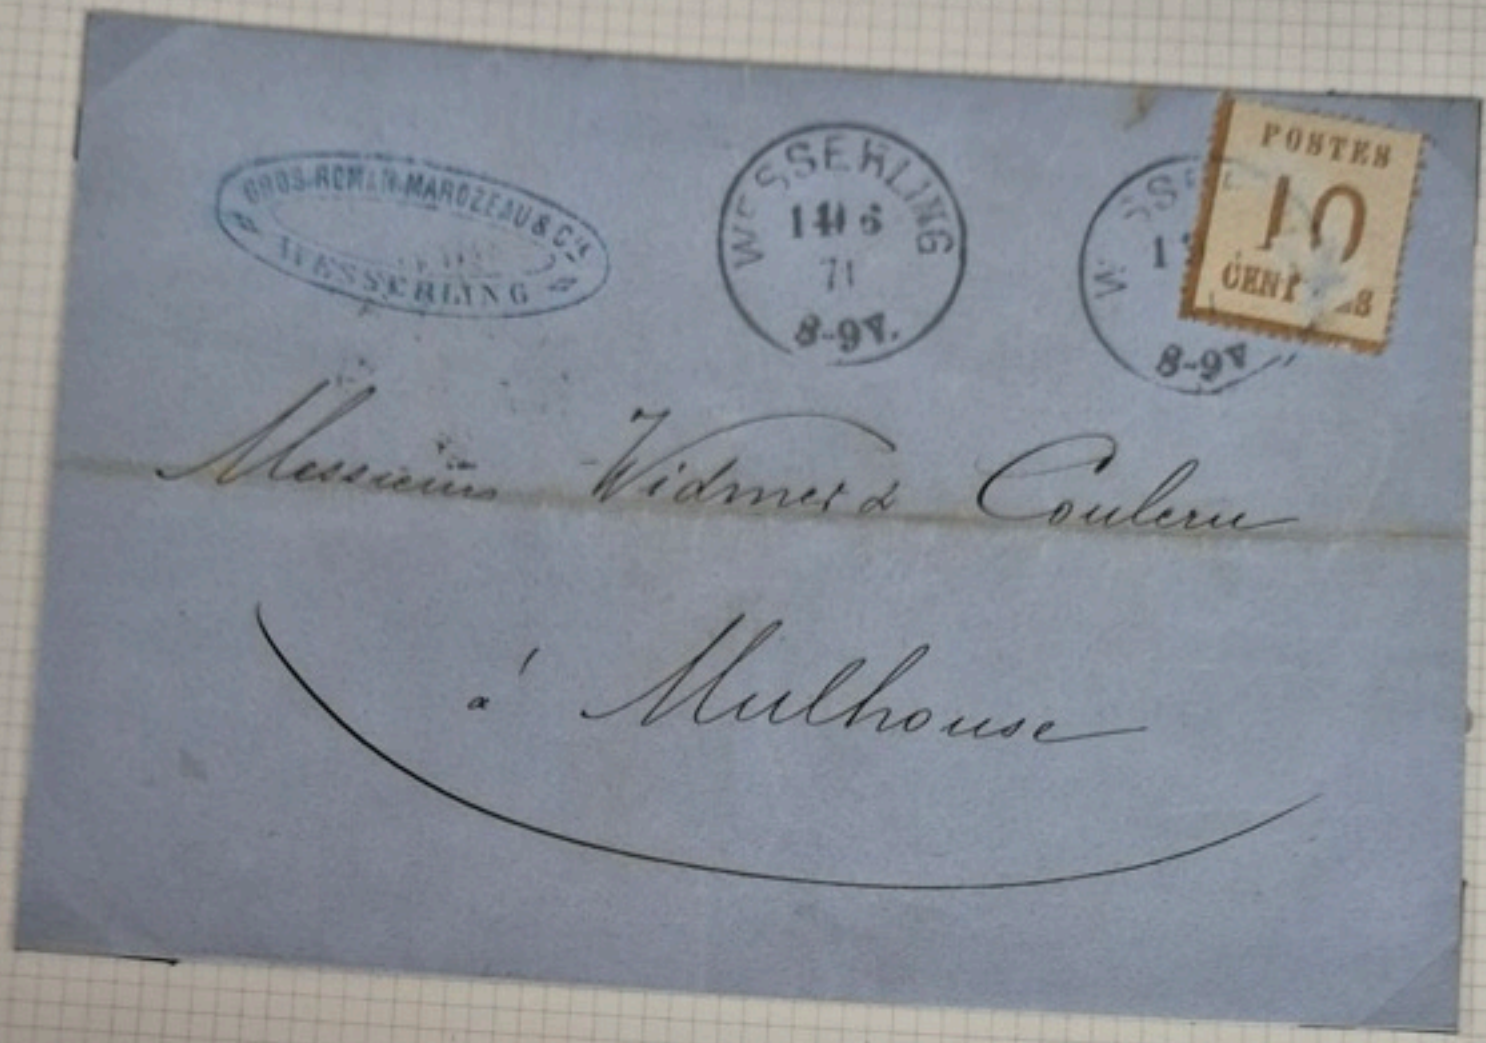 GROS ROMAN MAROZEAU & Cie
WESSERLING
WESSERLING
14 6
71
8-9 V.
8-9 V
POSTES
10
CENTIMES
Messieurs Widmer & Couleru
à Mulhouse